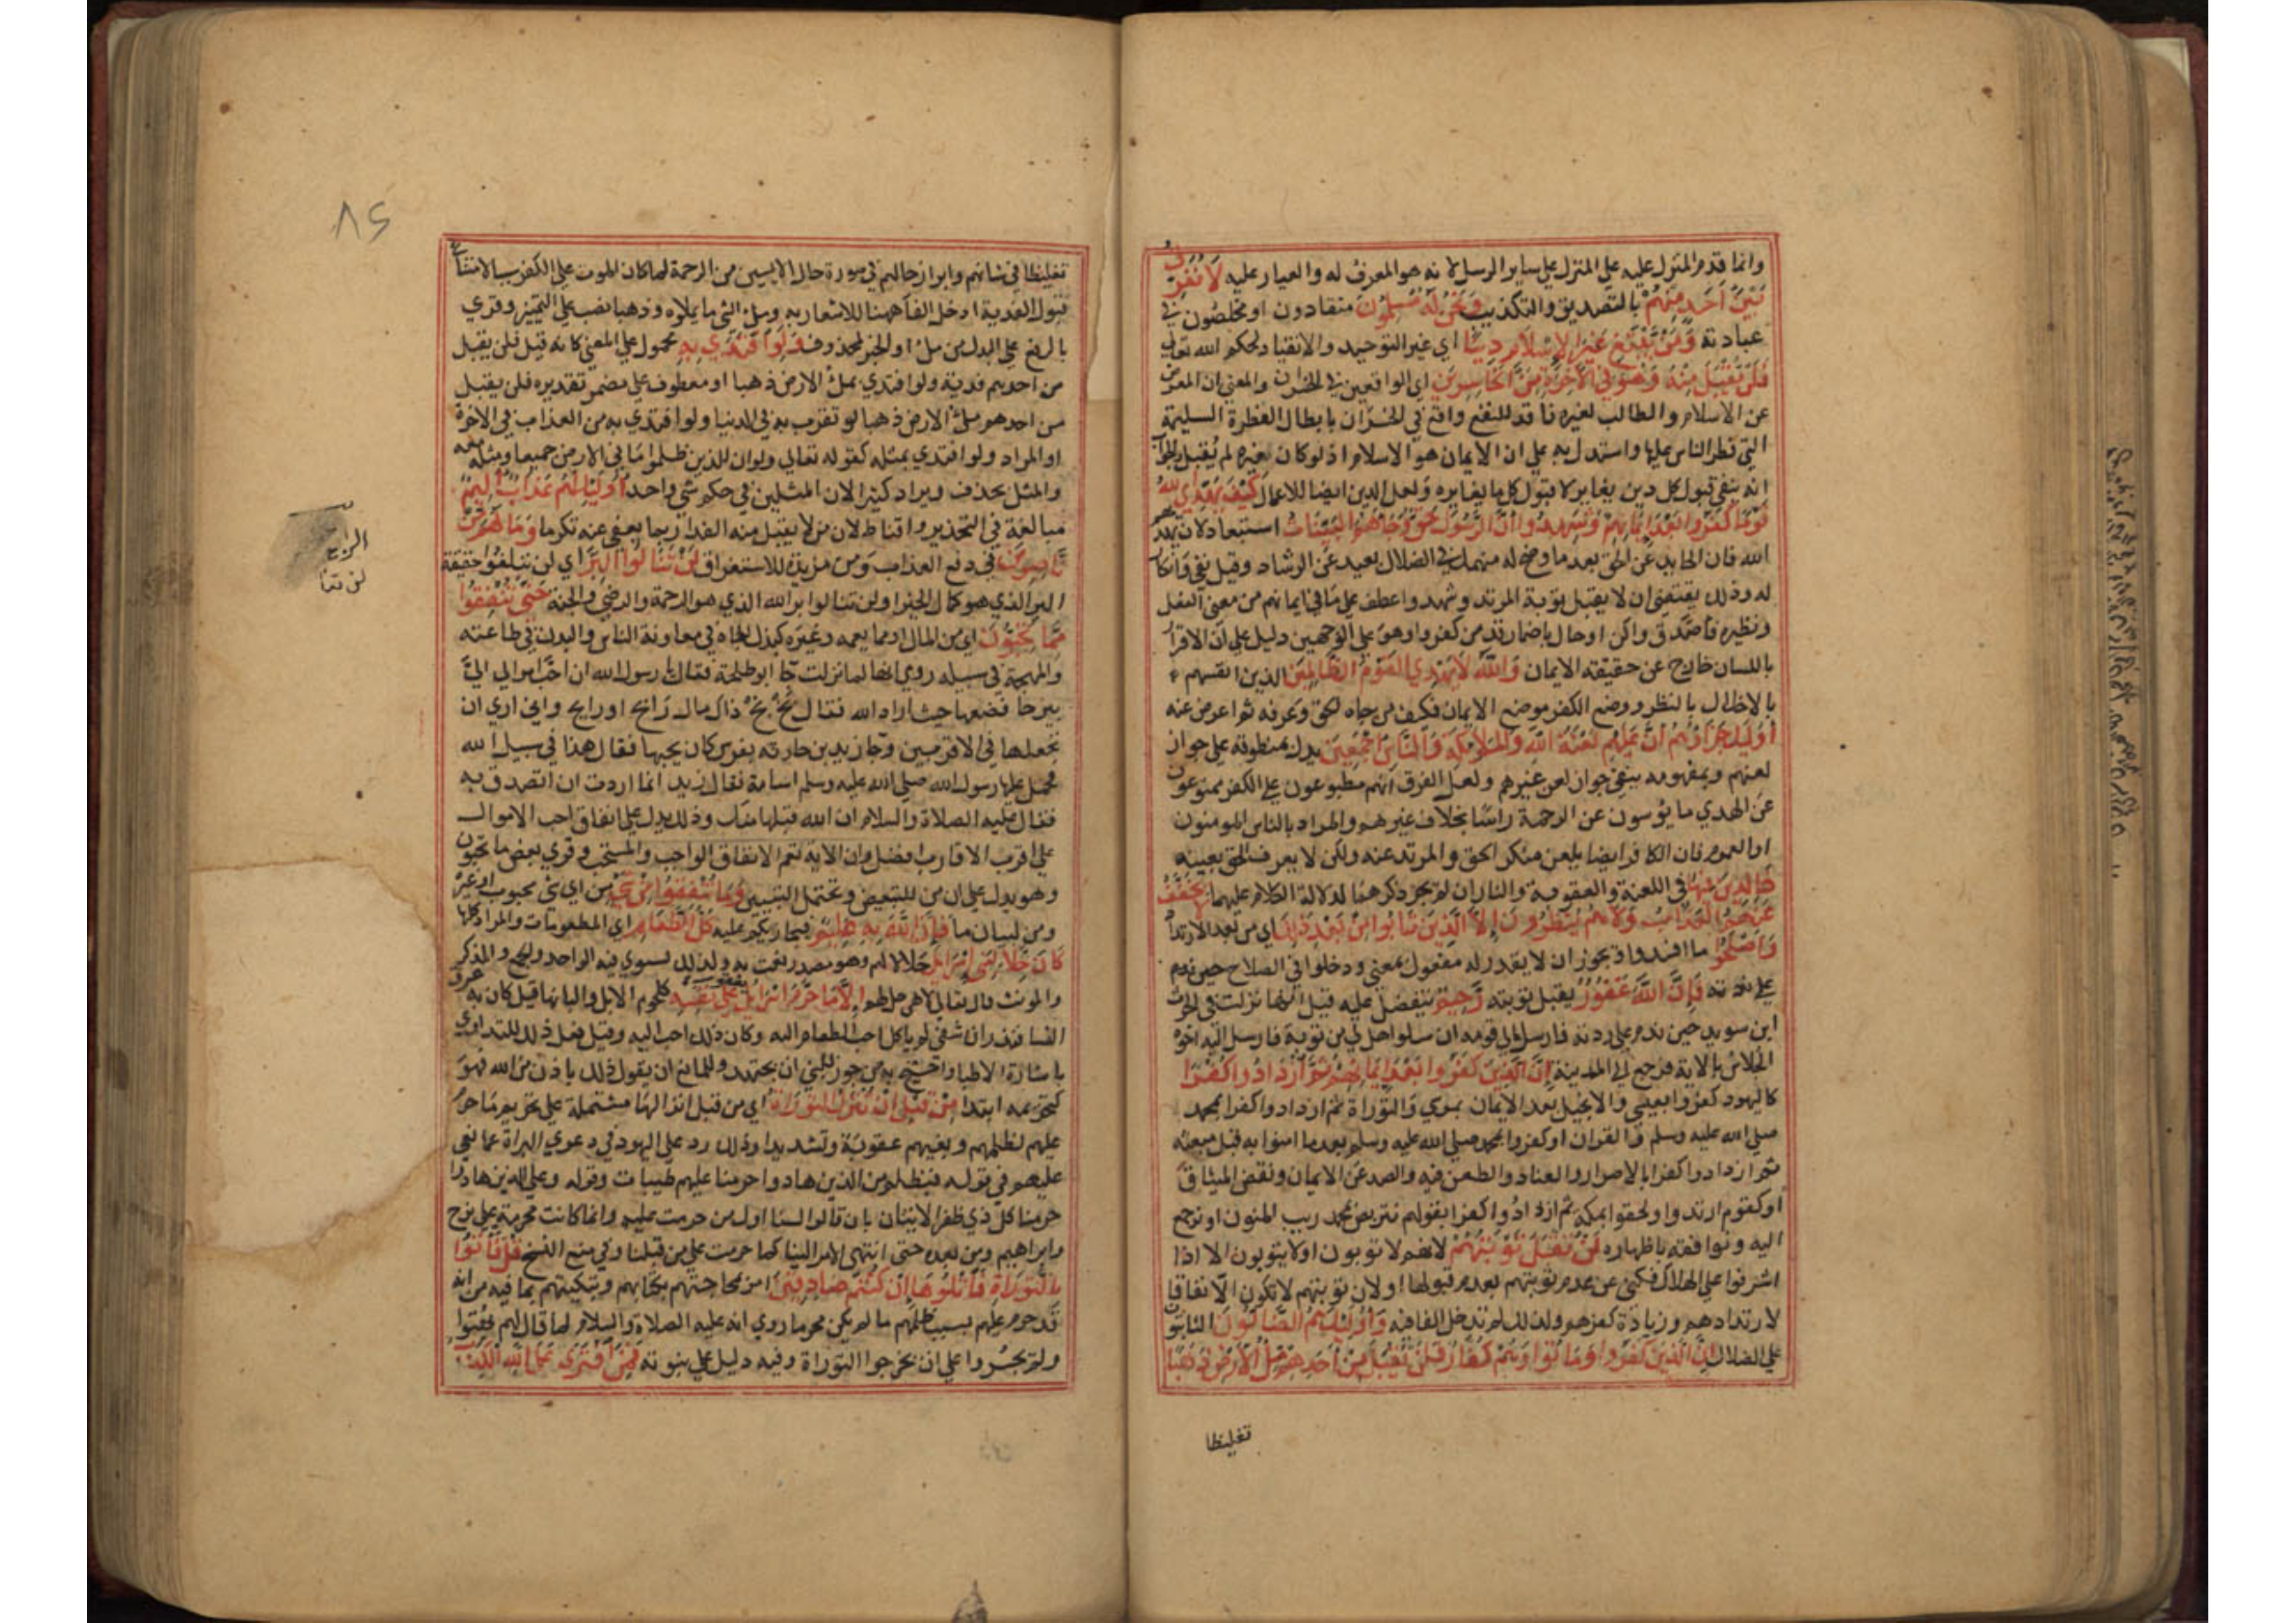 وانما قدم المنزل عليه علي المنزل علي ساير الرسل لانه هو المعرف له والعيار عليه لَا نُفَرِّقُ
بَيْنَ أَحَدٍ مِنْهُمْ بالتصديق والتكذيب وَنَحْنُ لَهُ مُسْلِمُونَ منقادون او مخلصون في
عبادته وَمَنْ يَبْتَغِ غَيْرَ الْإِسْلَامِ دِينًا اي غير التوحيد والانقياد لحكم الله تعالي
فَلَنْ يُقْبَلَ مِنْهُ وَهُوَ فِي الْآخِرَةِ مِنَ الْخَاسِرِينَ اي الواقعين في الخسران والمعني ان المعرض
عن الاسلام والطالب لغيره فاقد للنفع واقع في الخسران بابطال الفطرة السليمة
التي فطر الناس عليها واستدل به علي ان الايمان هو الاسلام اذ لو كان غيره لم يُقبل والجواب
انه ينفي قبول كل دين يغايره لا قبول كل ما يغايره ولعل الدين ايضا للاعمال كَيْفَ يَهْدِي اللهُ
قَوْمًا كَفَرُوا بَعْدَ إِيمَانِهِمْ وَشَهِدُوا أَنَّ الرَّسُولَ حَقٌّ وَجَاءَهُمُ الْبَيِّنَاتُ استبعاد لان يهديهم
الله فان الحايد عن الحق بعد ما وضح له منهمك في الضلال بعيد عن الرشاد وقيل نفي وانكار
له وذلك يقتضي ان لا يقبل توبة المرتد وشهدوا عطف علي ما في ايمانهم من معني الفعل
ونظيره فاصدق واكن او حال باضمار قد من كفروا وهو علي الوجهين دليل علي ان الاقرار
باللسان خارج عن حقيقة الايمان وَاللهُ لَا يَهْدِي الْقَوْمَ الظَّالِمِينَ الذين انفسهم
بالاخلال بالنظر ووضع الكفر موضع الايمان فكيف من جاه الحق وعرفه ثم اعرض عنه
أُولَئِكَ جَزَاؤُهُمْ أَنَّ عَلَيْهِمْ لَعْنَةَ اللهِ وَالْمَلَائِكَةِ وَالنَّاسِ أَجْمَعِينَ يدل بمنطوقه علي جواز
لعنهم وبمفهومه ينفي جواز لعن غيرهم ولعل الفرق انهم مطبوعون علي الكفر ممنوعون
عن الهدي مايؤسون عن الرحمة راسًا بخلاف غيرهم والمراد بالناس المومنون
او العموم فان الكافر ايضا يلعن منكر الحق والمرتد عنه ولكن لا يعرف الحق بعينه
خَالِدِينَ فِيهَا في اللعنة والعقوبة والنار ان لم يجز ذكرهما لدلالة الكلام عليهما لَا يُخَفَّفُ
عَنْهُمُ الْعَذَابُ وَلَا هُمْ يُنْظَرُونَ إِلَّا الَّذِينَ تَابُوا مِنْ بَعْدِ ذَلِكَ اي من بعد الارتداد
وَأَصْلَحُوا ما افسدوا ويجوز ان لا يقدر له مفعول بمعني ودخلوا في الصلاح حين ندم
علي ردته فَإِنَّ اللهَ غَفُورٌ يقبل توبته رَحِيمٌ يتفضل عليه قيل انها نزلت في الحرث
ابن سويد حين ندم علي ردته فارسل الي قومه ان سلوا هل لي من توبة فارسل اليه اخوه
الجلاس بالاية فرجع الي المدينة إِنَّ الَّذِينَ كَفَرُوا بَعْدَ إِيمَانِهِمْ ثُمَّ ازْدَادُوا كُفْرًا
كاليهود كفروا بعيسي والانجيل بعد الايمان بموسي والتوراة ثم ازدادوا كفرا بمحمد
صلي الله عليه وسلم والقران او كفروا بمحمد صلي الله عليه وسلم بعد ما امنوا به قبل مبعثه
ثم ازدادوا كفرا بالاصرار والعناد والطعن فيه والصد عن الايمان ونقض الميثاق
او كقوم ارتدوا ولحقوا بمكة ثم ازدادوا كفرا بقولهم نتربص بمحمد ريب المنون او نرجع
اليه وننافقه باظهاره لَنْ تُقْبَلَ تَوْبَتُهُمْ لانهم لا يتوبون او لا يتوبون الا اذا
اشرفوا علي الهلاك فكني عن عدم توبتهم بعدم قبولها او لان توبتهم لا تكون الا نفاقا
لارتدادهم وزيادة كفرهم ولذلك لم تدخل الفا فيه وَأُولَئِكَ هُمُ الضَّالُّونَ الثابتون
علي الضلال إِنَّ الَّذِينَ كَفَرُوا وَمَاتُوا وَهُمْ كُفَّارٌ فَلَنْ يُقْبَلَ مِنْ أَحَدِهِمْ مِلْءُ الْأَرْضِ ذَهَبًا
تغليظا
٨٢
تغليظا في شانهم وابراز حالهم في صورة حال الايسين من الرحمة لما كان الموت علي الكفر سببا لامتناع
قبول الفدية ادخل الفا ههنا للاشعار به وملئ الشي ما يملاوه وذهبا نصب علي التمييز وقري
بالرفع علي البدل من ملئ او الخبر لمحذوف وَلَوِ افْتَدَى بِهِ محمول علي المعني كانه قيل فلن يقبل
من احدهم فدية ولو افتدي بملئ الارض ذهبا او معطوف علي مضمر تقديره فلن يقبل
من احدهم ملئ الارض ذهبا لو تقرب به في الدنيا ولو افتدي به من العذاب في الاخرة
او المراد ولو افتدي بمثله كقوله تعالي ولو ان للذين ظلموا ما في الارض جميعا ومثله معه
والمثل يحذف ويراد كثيرا لان المثلين في حكم شي واحد أُولَئِكَ لَهُمْ عَذَابٌ أَلِيمٌ
مبالغة في التحذير واقناط لان من لا يقبل منه الفدا ربما يعفي عنه تكرما وَمَا لَهُمْ مِنْ
نَاصِرِينَ في دفع العذاب ومن مزيدة للاستغراق لَنْ تَنَالُوا الْبِرَّ اي لن تبلغوا حقيقة
البر الذي هو كمال الخير او لن تنالوا بر الله الذي هو الرحمة والرضي والجنة حَتَّى تُنْفِقُوا
مِمَّا تُحِبُّونَ اي من المال او مما يعمه وغيره كبذل الجاه في معاونة الناس والبدن في طاعته
والمهجة في سبيله روي انها لما نزلت جا ابو طلحة فقال يا رسول الله ان احب اموالي الي
بيرحا فضعها حيث اراد الله فقال بخ بخ ذاك مال رابح او رايح واني اري ان
تجعلها في الاقربين وجا زيد بن حارثه بفرس كان يحبها فقال هذا في سبيل الله
فحمل عليها رسول الله صلي الله عليه وسلم اسامة فقال زيد انما اردت ان اتصدق به
فقال عليه الصلاة والسلام ان الله قبلها منك وذلك يدل علي انفاق احب الاموال
علي اقرب الاقارب افضل وان الاية تعم الانفاق الواجب والمستحب وقري بعض ما تحبون
وهو يدل علي ان من للتبعيض وتحتمل التبيين وَمَا تُنْفِقُوا مِنْ شَيْءٍ من اي شي محبوب او غيره
ومن لبيان ما فَإِنَّ اللهَ بِهِ عَلِيمٌ فيجازيكم عليه كُلُّ الطَّعَامِ اي المطعومات والمراد كلها
كَانَ حِلًّا لِبَنِي إِسْرَائِيلَ حلالا لهم وهو مصدر نعت به ولذلك يستوي فيه الواحد والجمع والمذكر
والمونث قال تعالي لا هن حل لهم إِلَّا مَا حَرَّمَ إِسْرَائِيلُ عَلَى نَفْسِهِ يعقوب كلحوم الابل والبانها قيل كان به عرق
النسا فنذر ان شفي لم ياكل احب الطعام اليه وكان ذلك احب اليه وقيل فعل ذلك للتداوي
باشارة الاطبا واحتج به من جوز للنبي ان يجتهد وللمانع ان يقول ذلك باذن من الله فهو
كتحريمه ابتدا مِنْ قَبْلِ أَنْ تُنَزَّلَ التَّوْرَاةُ اي من قبل انزالها مشتملة علي تحريم ما حرم
عليهم لظلمهم وبغيهم عقوبة وتشديدا وذلك رد علي اليهود في دعوي البراة عما نعي
عليهم في قوله فبظلم من الذين هادوا حرمنا عليهم طيبات وقوله وعلي الذين هادوا
حرمنا كل ذي ظفر الايتان بان قالوا لسنا اول من حرمت عليه وانما كانت محرمة علي نوح
وابراهيم ومن بعده حتي انتهي الامر الينا كما حرمت علي من قبلنا وفي منع النسخ قُلْ فَأْتُوا
بِالتَّوْرَاةِ فَاتْلُوهَا إِنْ كُنْتُمْ صَادِقِينَ امر بمحاجتهم بكتابهم وتبكيتهم بما فيه من انه
قد حرم عليهم بسبب ظلمهم ما لم يكن محرما روي انه عليه الصلاة والسلام لما قال لهم بهتوا
ولم يجسروا علي ان يخرجوا التوراة وفيه دليل علي نبوته فَمَنِ افْتَرَى عَلَى اللهِ الْكَذِبَ
الرابع
لن تنا